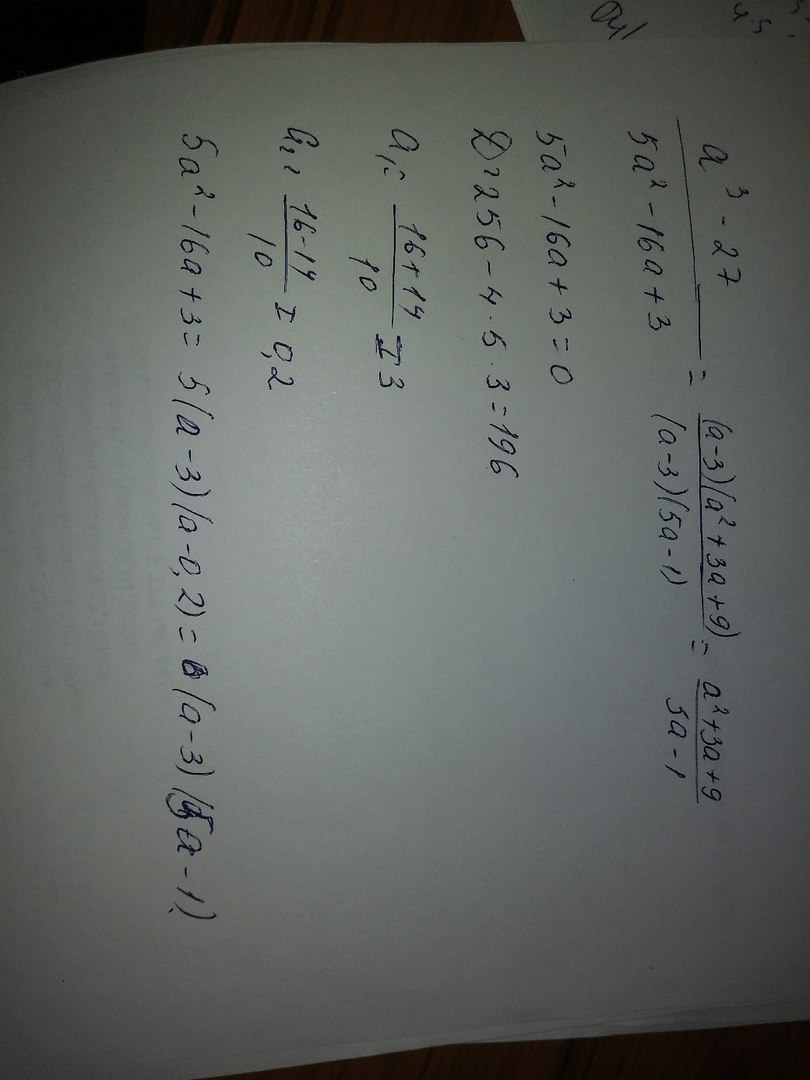 a³ - 27 / 5a² - 16a + 3 = (a-3)(a² + 3a + 9) / (a-3)(5a-1) = a² + 3a + 9 / 5a - 1
5a² - 16a + 3 = 0
D = 256 - 4 · 5 · 3 = 196
a₁ = 16 + 14 / 10 = 3
a₂ = 16 - 14 / 10 = 0,2
5a² - 16a + 3 = 5(a - 3)(a - 0,2) = (a - 3)(5a - 1)